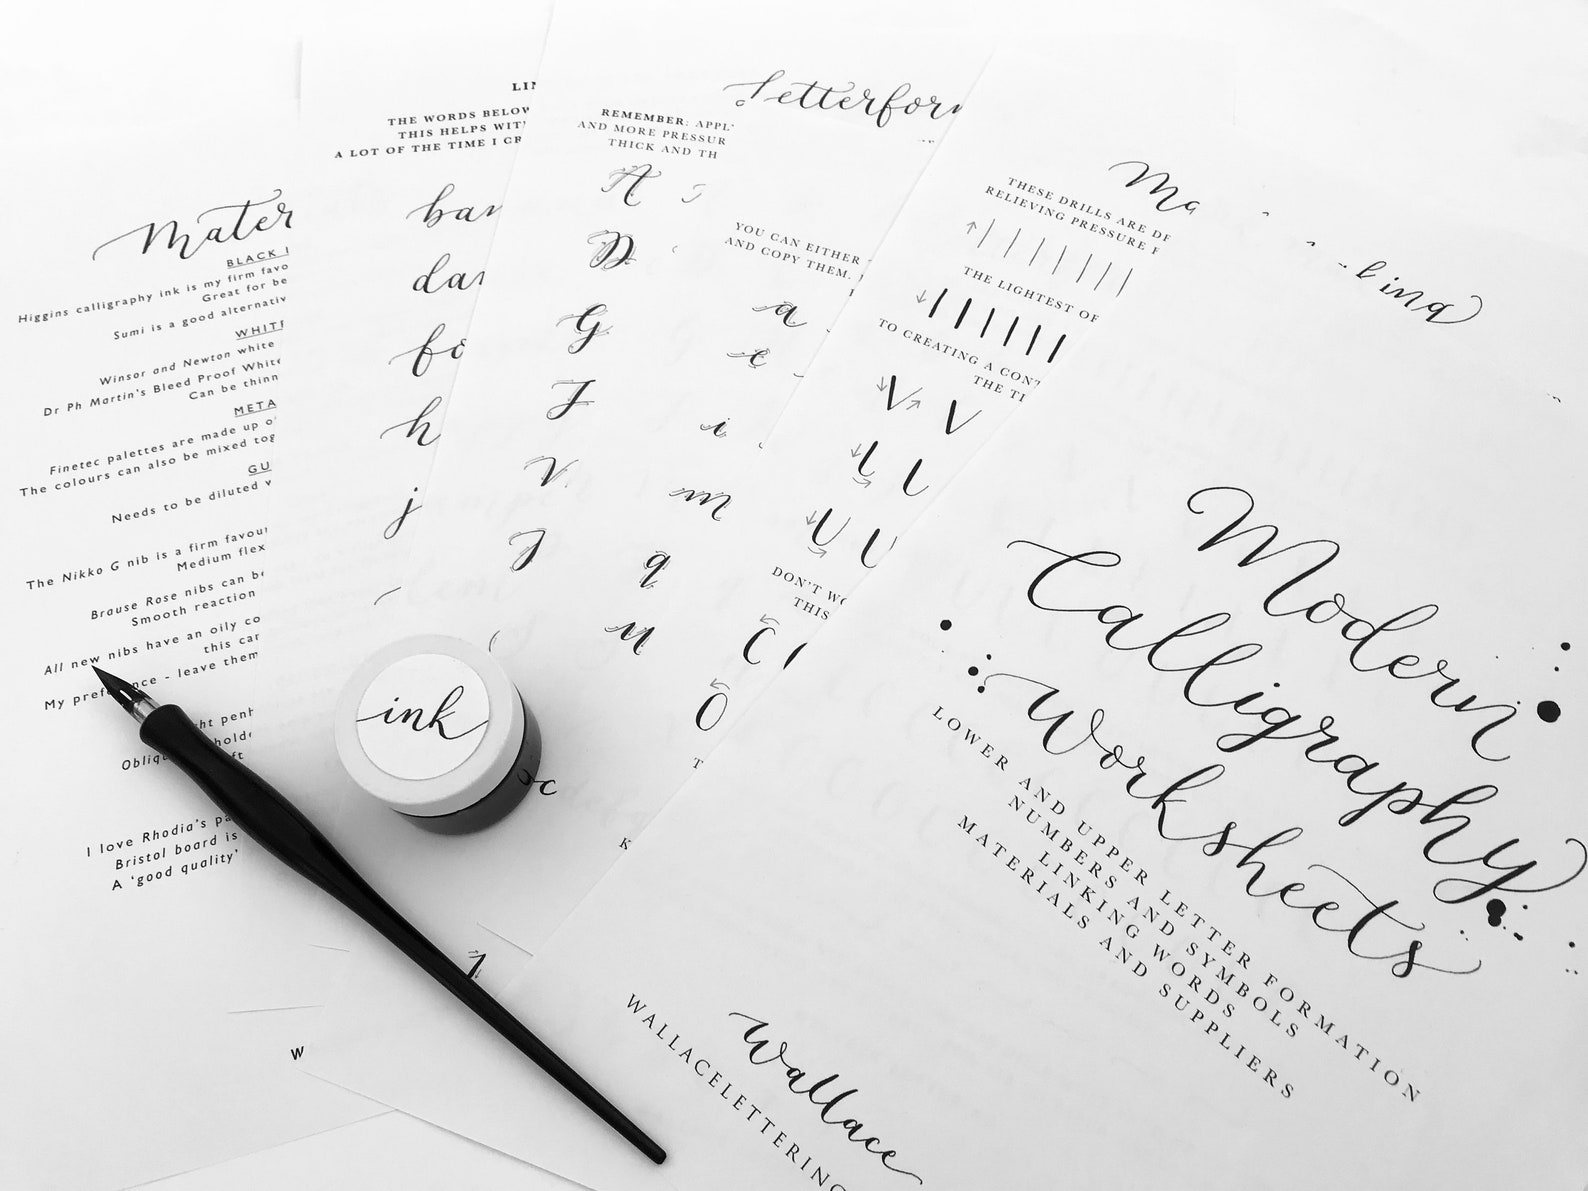 BLACK
Higgins calligraphy ink is my firm favo
Great for be
Sumi is a good alternativ
WHIT
Winsor and Newton white
Dr Ph Martin's Bleed Proof White
Can be thinn
META
Finetec palettes are made up o
The colours can also be mixed tog
GU
Needs to be diluted
The Nikko G nib is a firm favou
Medium flex
Brause Rose nibs can b
Smooth reaction
All new nibs have an oily co
this car
My preference - leave them
I love Rhodia's pa
Bristol board is
A 'good quality'
W
THE WORDS BELOW
THIS HELPS WITH
A LOT OF THE TIME I CR
h
j
ink
REMEMBER: APPL
AND MORE PRESSUR
THICK AND TH
A
D
G
J
V
c
1
Letterform
YOU CAN EITHER
AND COPY THEM.
a
e
i
m
q
u
K
THESE DRILLS ARE
RELIEVING PRESSURE
THE LIGHTEST OF
TO CREATING A CONT
THE TI
V V
DON'T
THIS
C
O
T
Modern
Calligraphy
Worksheets
LOWER AND UPPER LETTER FORMATION
NUMBERS AND SYMBOLS
LINKING WORDS
MATERIALS AND SUPPLIERS
Wallace
WALLACELETTERING